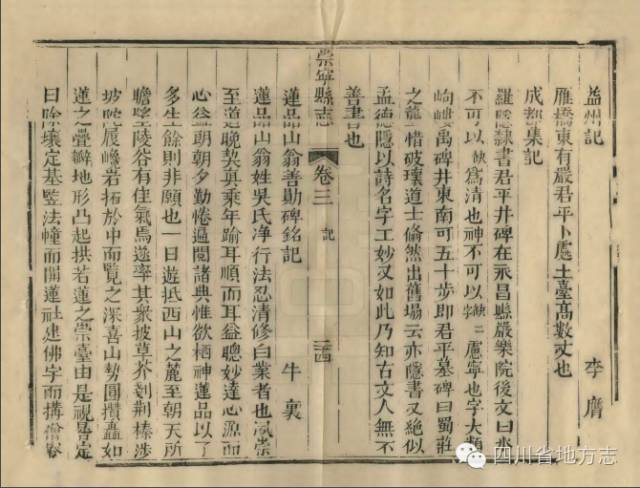 益州記
李膺
雁橋東有嚴君平卜處土臺高數丈也
成都集記
羅隱隸書君平井碑在永昌縣嚴樂院後文曰
不可以缺爲清也神不可以缺二慮寧也字大類
岣嶁禹碑井東南可五十步即君平墓碑曰蜀莊
之龍惜破壞道士脩然出舊塌云亦隱書又絕似
孟德隱以詩名字工妙又如此乃知古文人無不
善書也
崇寧縣志
卷三
記
蓮品山翁善勛碑銘記
牛襄
蓮品山翁姓吳氏淨行法忍清修白業者也咸崇
至道晚契眞乘年踰耳順而耳益聰妙達心源而
心益朗朝夕勤惓遍閱諸典惟欲栖神蓮品以了
多生餘則非願也一日遊抵西山之麓至朝天所
瞻望陵谷有佳氣焉遂率其衆披草芥剗荆榛涉
坡陀履巉岩拓於中而覽之深喜山勢團攢矗如
蓮之疊瓣地形凸起拱若蓮之崇臺由是視昏定
曰除壤定基竪法幢而開蓮社建佛宇而搆僧
四川省地方志